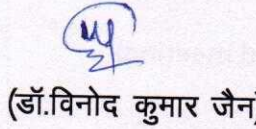 (डॉ.विनोद कुमार जैन)